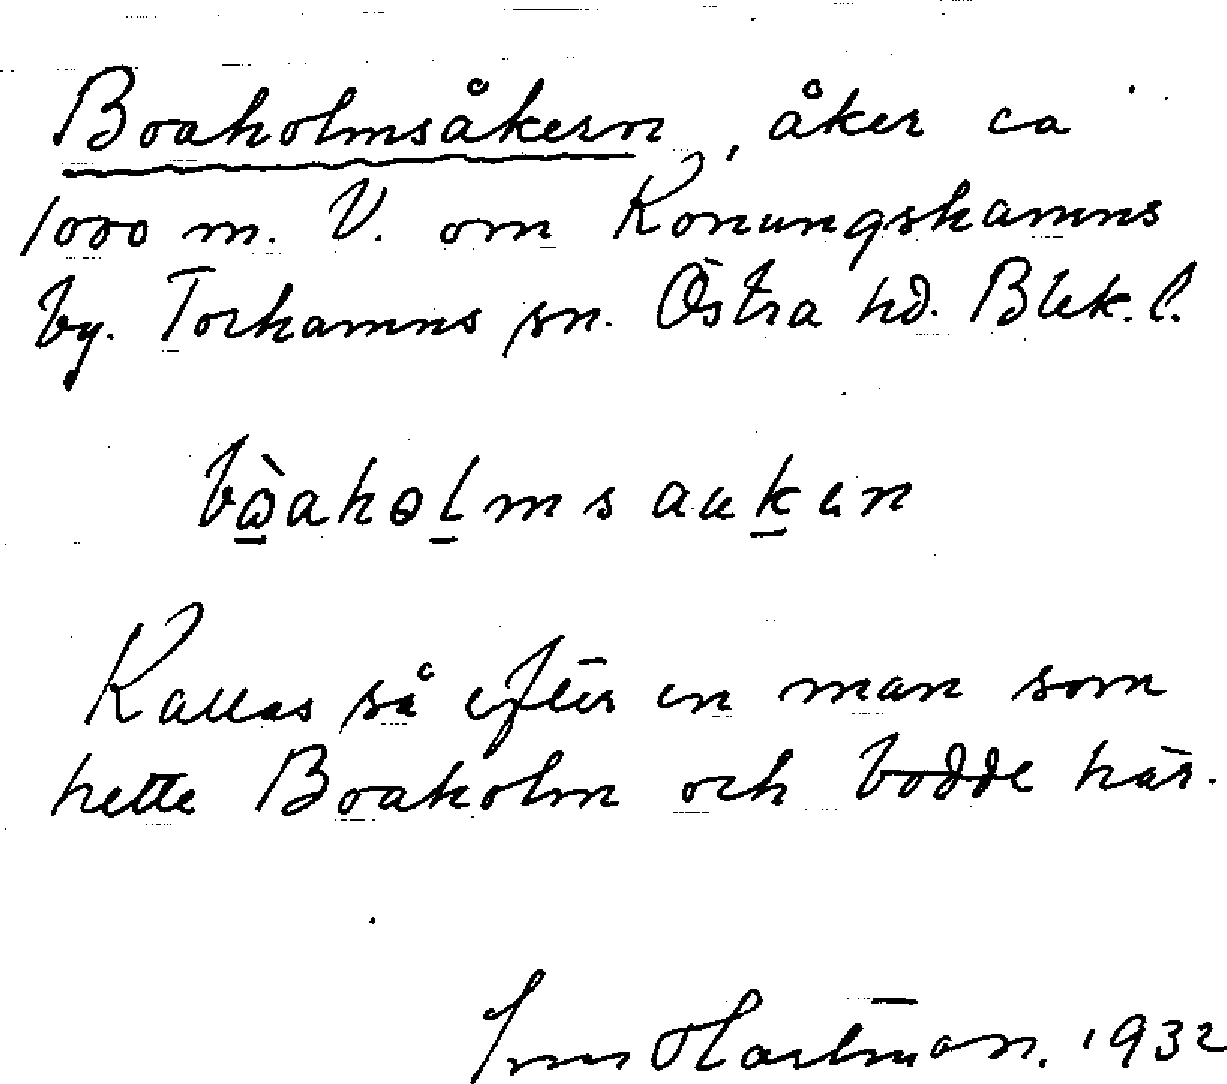 Boaholmsåkern, åker ca
1000 m. V. om Konungshamns
by. Torhamns sn. Östra hd. Blek. l.
bòaholmsauken
Kallas så efter en man som
hette Boaholm och bodde här.
Hartman. 1932